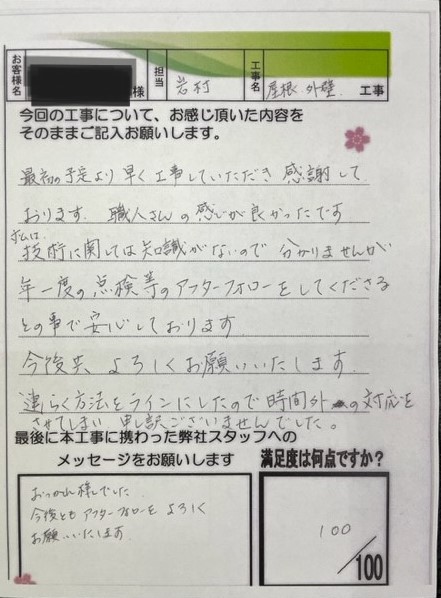 お客様名 様 担当 岩村 工事名 屋根 外壁 工事
今回の工事について、お感じ頂いた内容を
そのままご記入お願いします。
最初の予定より早く工事していただき感謝して
おります。職人さんの感じが良かったです
私は
技術に関しては知識がないので分かりませんが
年一度の点検等のアフターフォローをしてくださる
との事で安心しております
今後共よろしくお願いいたします。
連らく方法をラインにしたので時間外の対応を
させてしまい申し訳ございませんでした。
最後に本工事に携わった弊社スタッフへの
メッセージをお願いします
満足度は何点ですか?
おつかれ様でした
今後ともアフターフォローをよろしく
お願いいたします
100
/100